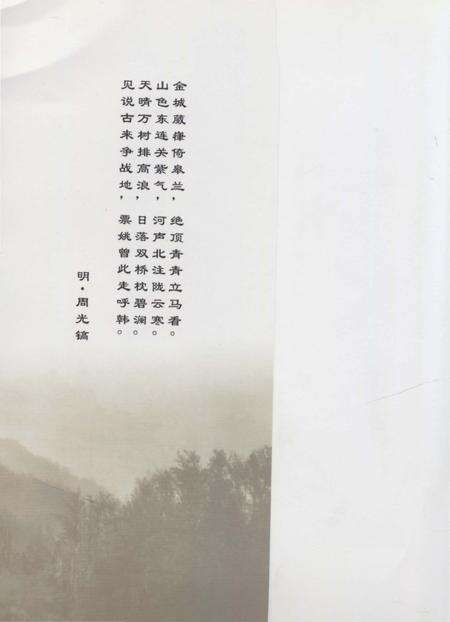 金城葳嵂倚皋兰，绝顶青青立马看。
山色东连关紫气，河声北注陇云寒。
天晴万树排高浪，日落双桥枕碧澜。
见说古来争战地，票姚曾此走呼韩。
明·周光镐